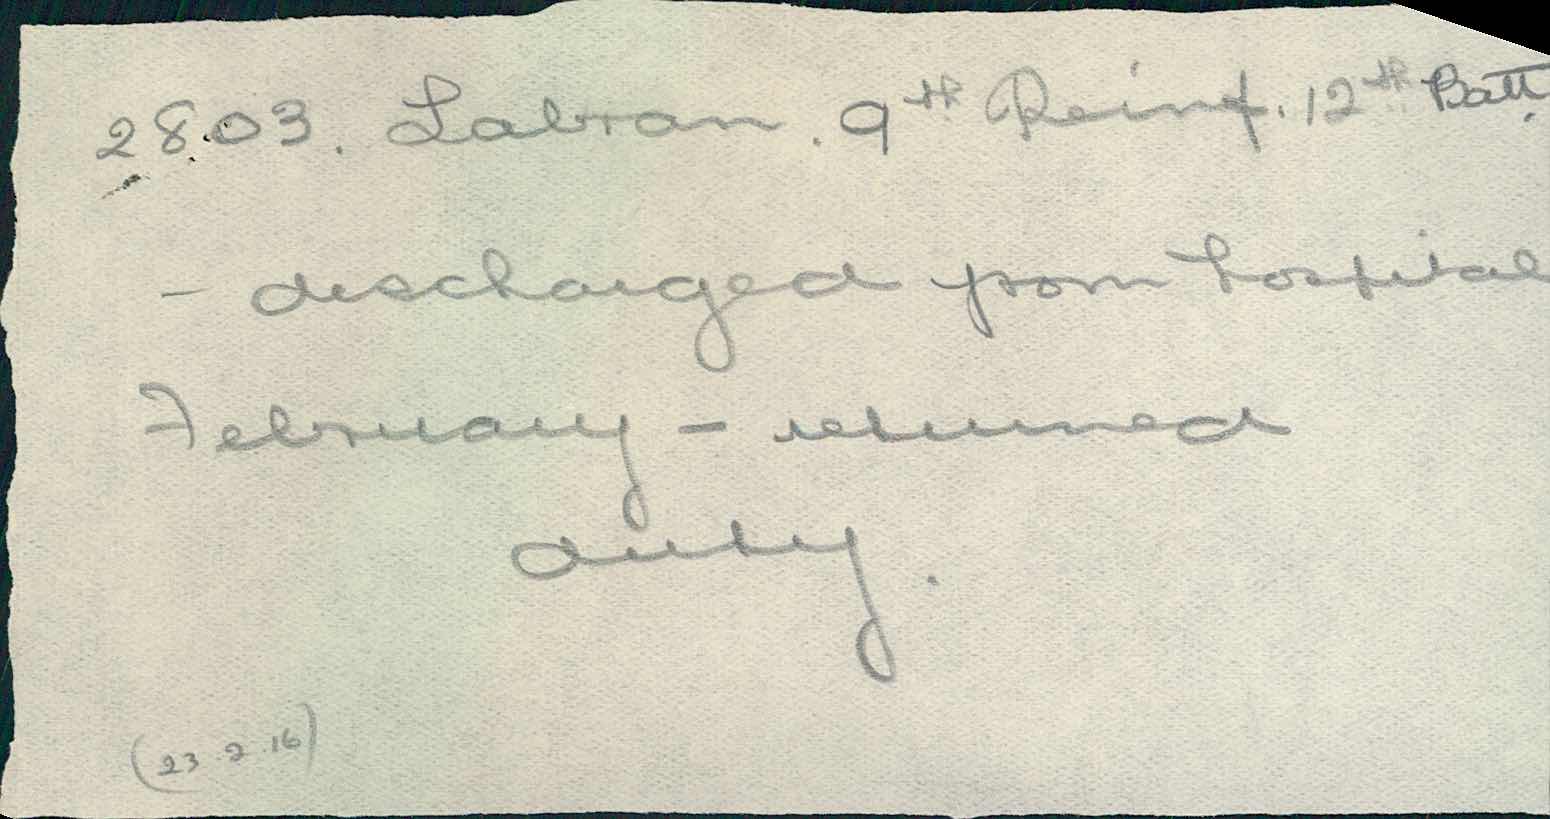 2803. Labran. 9th Reinf. 12th Batt.
- discharged from hospital
February - returned
duty.
(23.2.16)